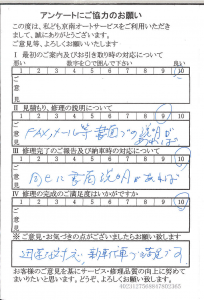 アンケートにご協力のお願い
この度は、私ども京南オートサービスをご利用いただき
まして、誠にありがとうございます。
ご意見等、よろしくお願いいたします。
Ⅰ 最初のご案内及びお引き取り時の対応について
悪い 数字を○で囲んで下さい 良い
1 2 3 4 5 6 7 8 9 10
ご意見
Ⅱ 見積もり、修理の説明について
1 2 3 4 5 6 7 8 9 10
ご意見
FAX、メール等 書面での説明が
あれば
Ⅲ 修理完了のご報告及び納車時の対応について
1 2 3 4 5 6 7 8 9 10
ご意見
同じに書面説明があれば
Ⅳ 修理の完成のご満足度はいかがですか
1 2 3 4 5 6 7 8 9 10
※ご意見・お気づきの点がございましたらお願いします
迅速な対応
お客様のご意見を基にサービス・修理品質の向上に努めて
まいりたいと思います。どうぞ、よろしくお願いいたします。